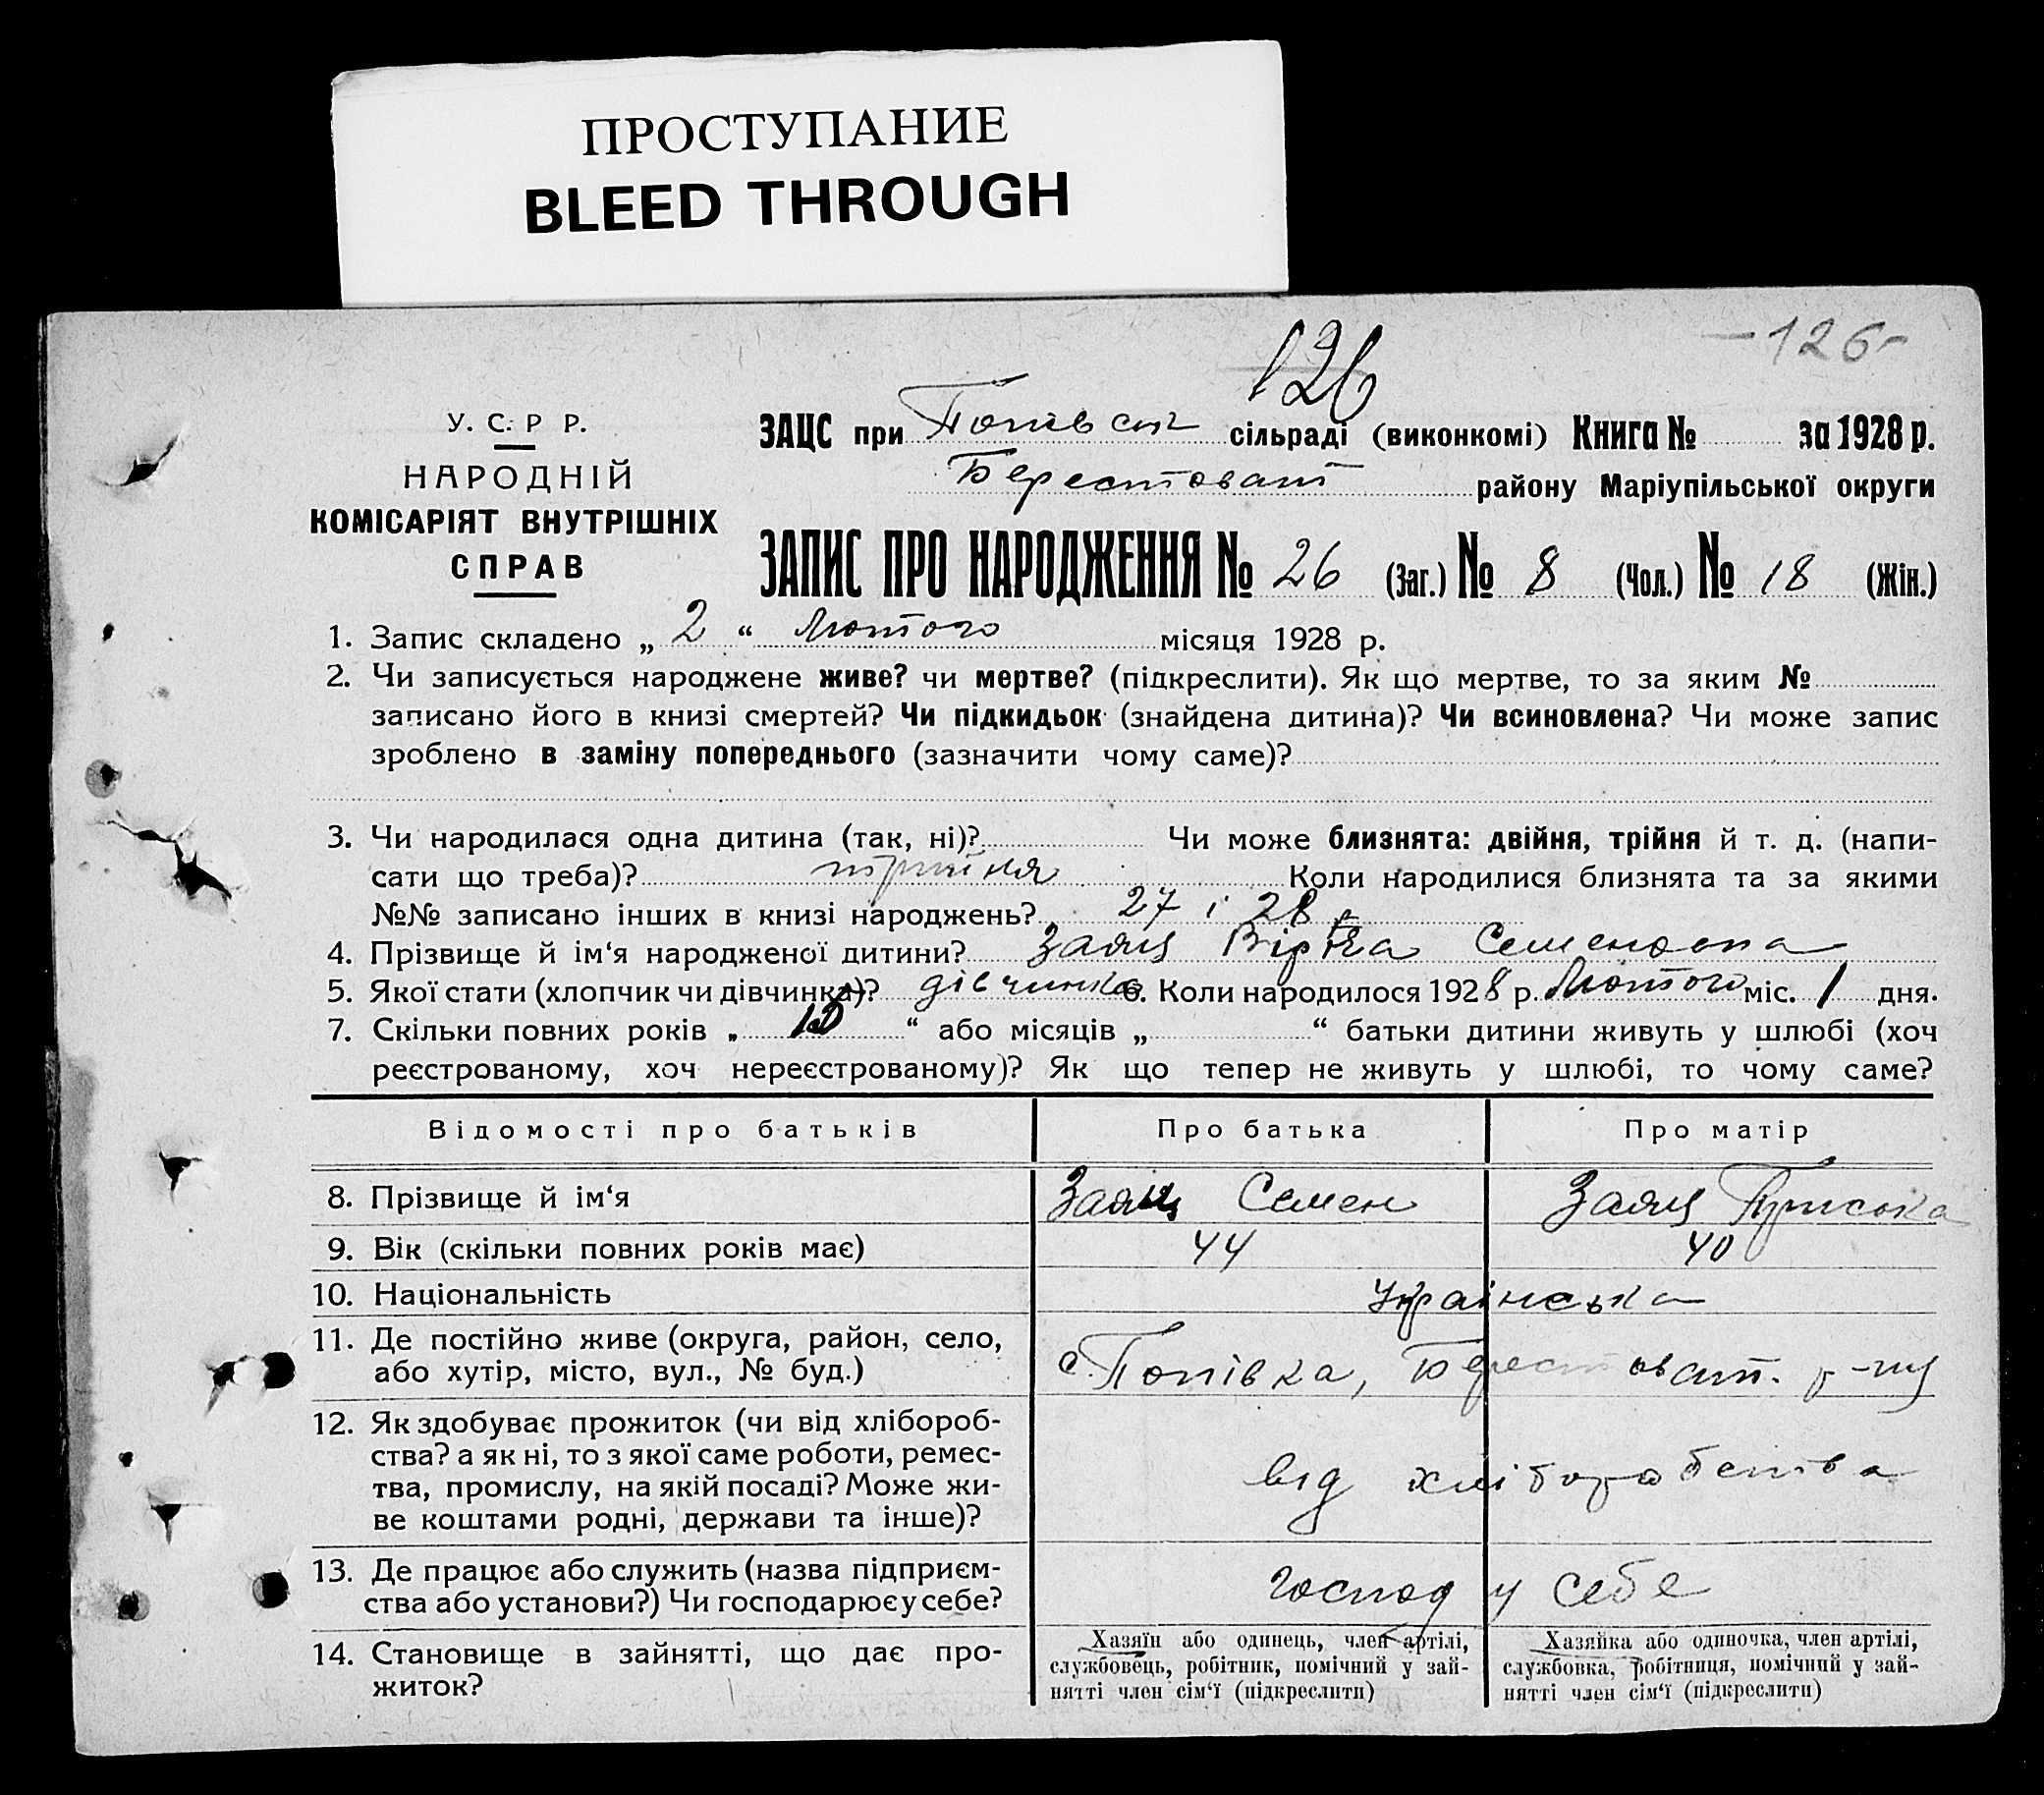 ПРОСТУПАНИЕ
BLEED THROUGH
-126-
126
У. С. Р Р.
НАРОДНІЙ
КОМІСАРІЯТ ВНУТРІШНІХ
СПРАВ
ЗАЦС при Попівськ сільраді (виконкомі) Книга № за 1928 р.
Берестоват району Маріупільської округи
ЗАПИС ПРО НАРОДЖЕННЯ № 26 (Заг.) № 8 (Чол.) № 18 (Жін.)
1. Запис складено „ 2 “ Лютого місяця 1928 р.
2. Чи записується народжене живе? чи мертве? (підкреслити). Як що мертве, то за яким №
записано його в книзі смертей? Чи підкидьок (знайдена дитина)? Чи всиновлена? Чи може запис
зроблено в заміну попереднього (зазначити чому саме)?
3. Чи народилася одна дитина (так, ні)? Чи може близнята: двійня, трійня й т. д. (напи-
сати що треба)? трійня Коли народилися близнята та за якими
№№ записано інших в книзі народжень? 27 і 28
4. Прізвище й ім‘я народженої дитини? Заяц Семеновна
5. Якої стати (хлопчик чи дівчинка)? дівчинка 6. Коли народилося 1928 р. Лютого міс. 1 дня.
7. Скільки повних років „ “ або місяців „ “ батьки дитини живуть у шлюбі (хоч
реєстрованому, хоч нереєстрованому)? Як що тепер не живуть у шлюбі, то чому саме?
Відомості про батьків Про батька Про матір
8. Прізвище й ім‘я Заяц Семен Заяц Приська
9. Вік (скільки повних років має) 44 40
10. Національність Українська
11. Де постійно живе (округа, район, село,
або хутір, місто, вул., № буд.) с. Попівка, Берестоват. р-ну
12. Як здобуває прожиток (чи від хлібороб-
ства? а як ні, то з якої саме роботи, ремес-
тва, промислу, на якій посаді? Може жи-
ве коштами родні, держави та інше)? від хліборобства
13. Де працює або служить (назва підприєм-
ства або установи?) Чи господарює у себе? господ у себе
14. Становище в зайнятті, що дає про-
житок?
Хазяїн або одинець, член артілі,
службовець, робітник, помічний у зай-
нятті член сім‘ї (підкреслити)
Хазяйка або одиночка, член артілі,
службовка, робітниця, помічний у зай-
нятті член сім‘ї (підкреслити)